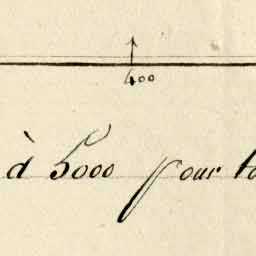 400
à 5000 pour